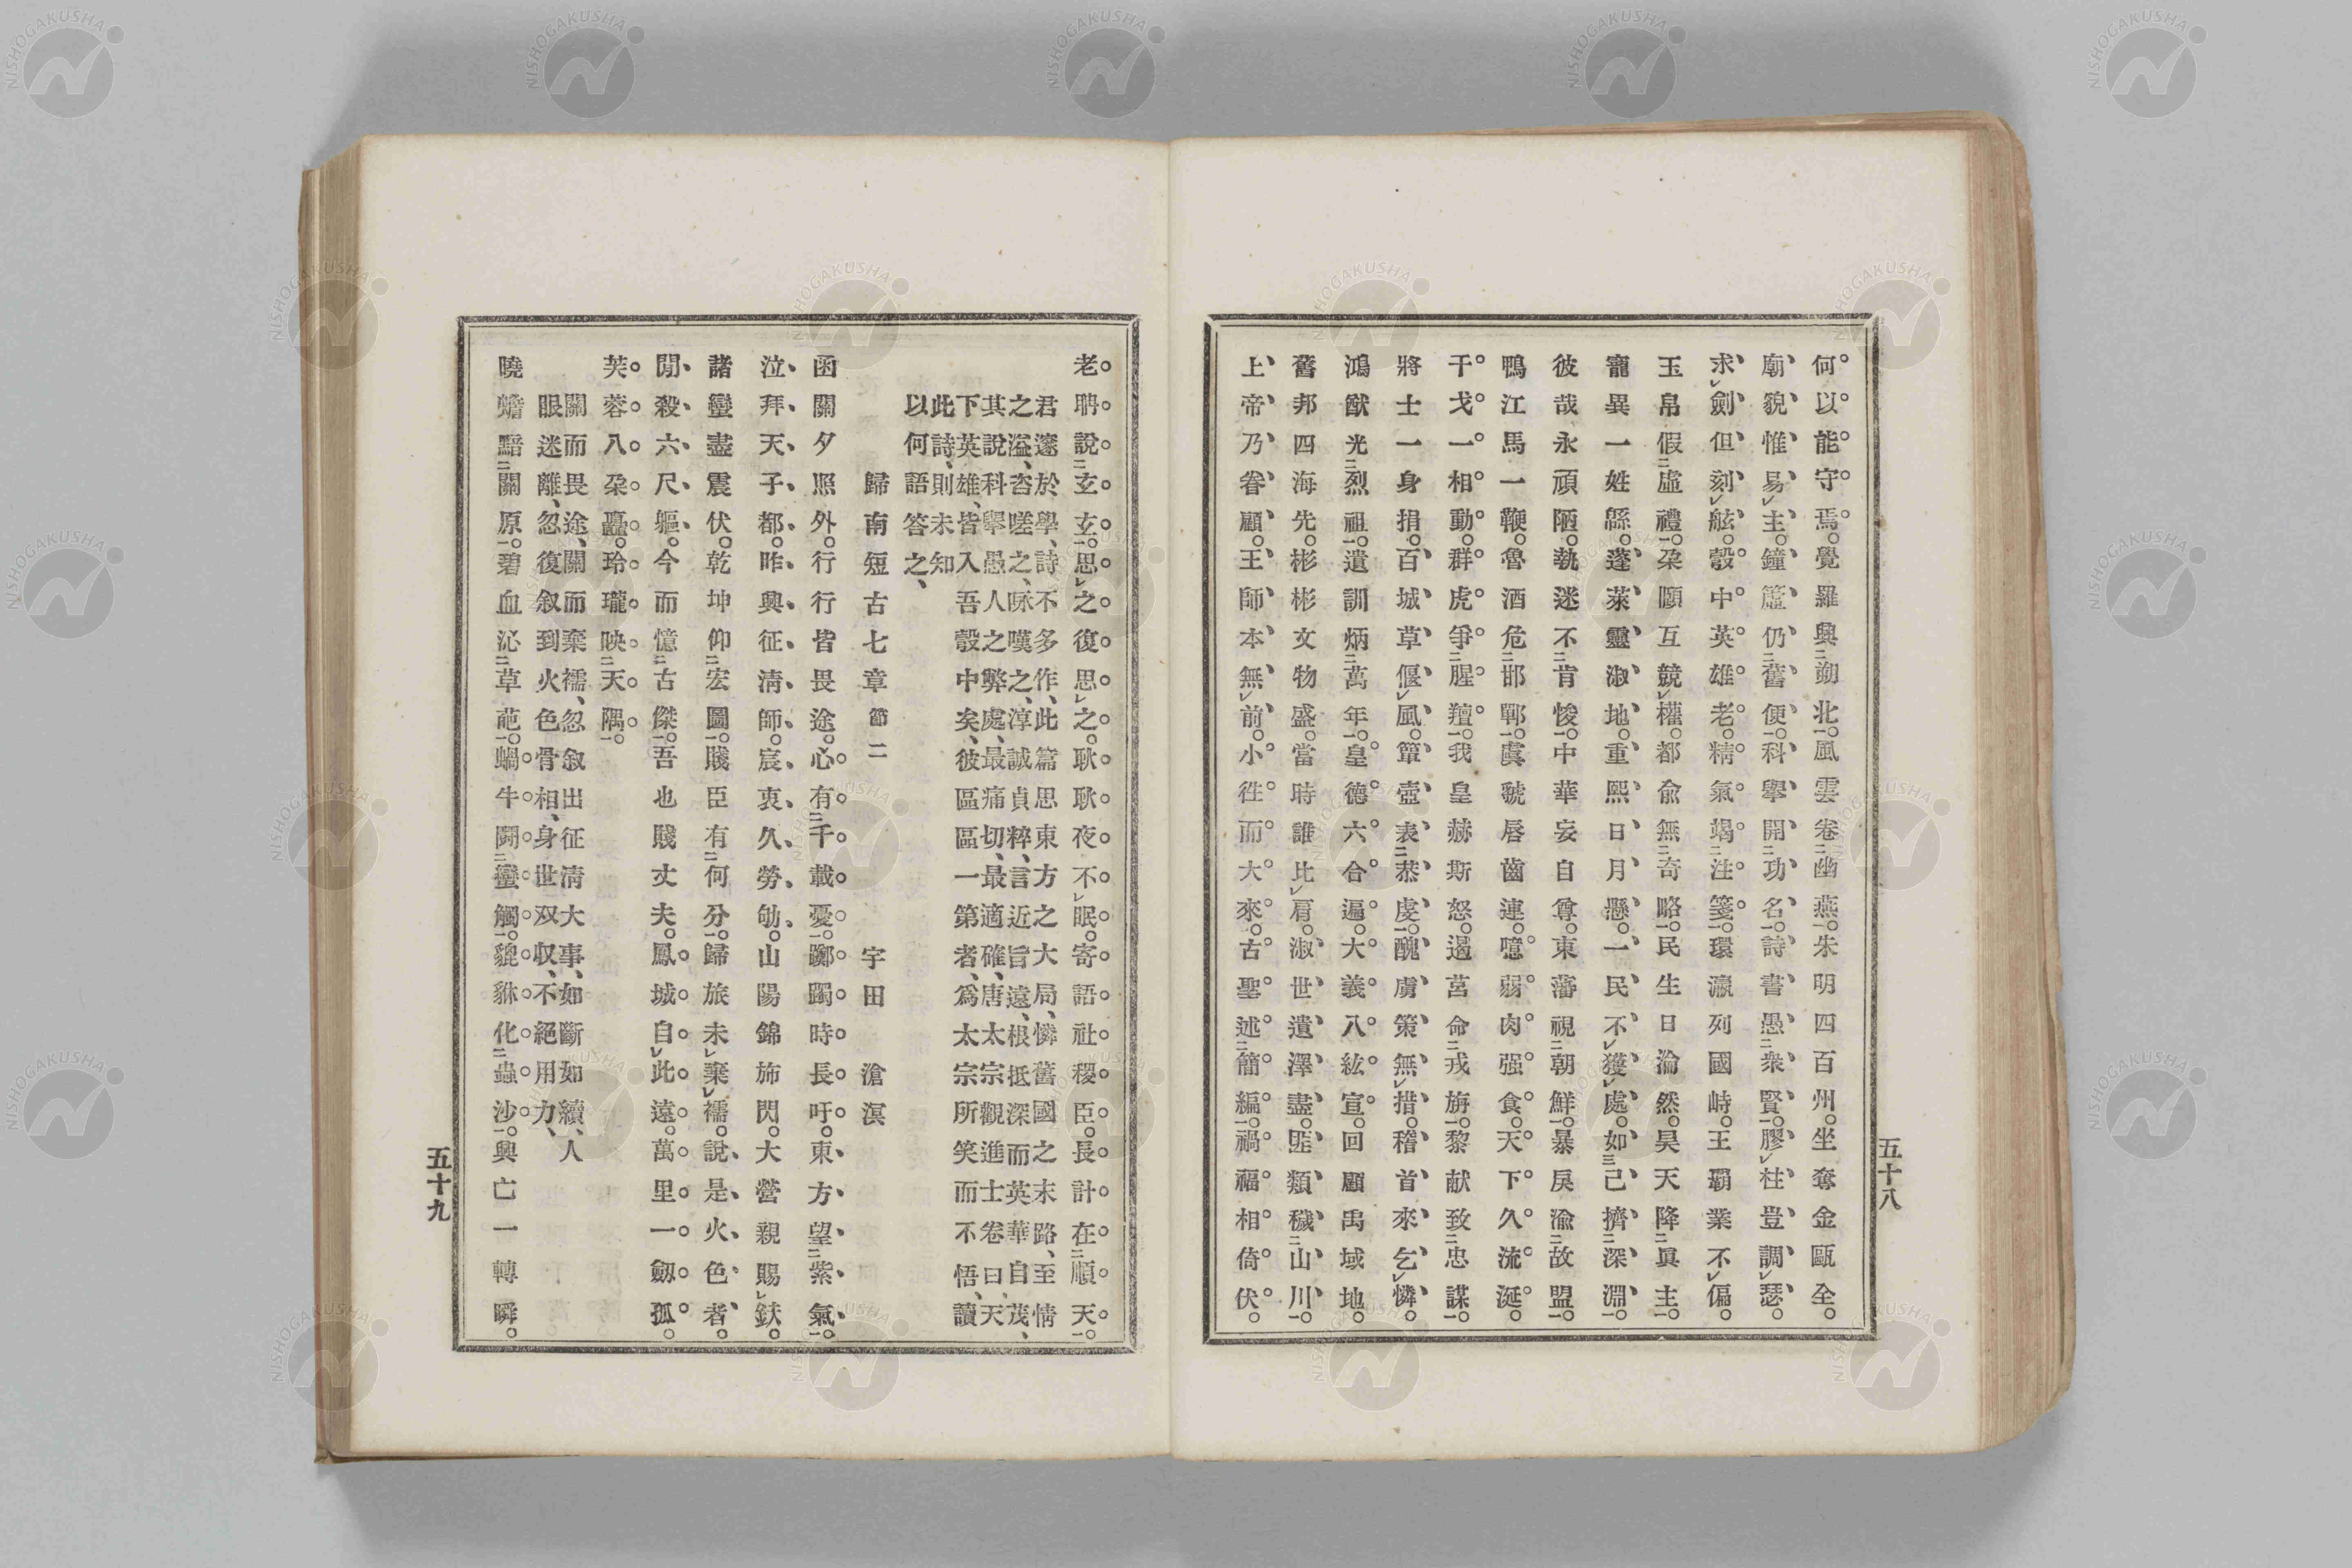 何以能守焉。覺羅興朔北。風雲卷幽燕。朱明四百州。坐奪金甌全。
廟貌惟易主。鐘簴仍舊便。科擧開功名。詩書愚衆賢。膠柱豈調瑟。
求劍但刻舷。彀中英雄老。精氣竭注箋。環瀛列國峙。王覇業不偏。
玉帛假虛禮。朶頤互競權。都兪無奇略。民生日淪然。昊天降眞主。
寵異一姓緜。蓬萊靈淑地。重熙日月懸。一民不獲處。如己擠深淵。
彼哉永頑陋。執迷不肯悛。中華妄自尊。東藩視朝鮮。暴戾渝故盟。
鴨江馬一鞭。魯酒危邯鄲。虞虢唇齒連。噫弱肉强食。天下久流涎。
干戈一相動。群虎爭腥羶。我皇赫斯怒。遏莒命戎旃。黎献致忠謀。
將士一身捐。百城草偃風。簞壺表恭虔。醜虜策無措。稽首來乞憐。
鴻猷光烈祖。遺訓炳萬年。皇德六合遍。大義八紘宣。回顧禹域地。
舊邦四海先。彬彬文物盛。當時誰比肩。淑世遺澤盡。匪類穢山川。
上帝乃眷顧。王師本無前。小徃而大來。古聖述簡編。禍福相倚伏。
五十八
老聃說玄玄。思之復思之。耿耿夜不眠。寄語社稷臣。長計在順天。
君邃於學、詩不多作、此篇思東方之大局、憐舊國之末路、至情
之溢、咨嗟之、咏嘆之、淳誠貞粹、言近旨遠、根抵深而英華自茂、
其說科擧愚人之弊處、最痛切、最適確、唐太宗觀進士卷曰、天
下英雄、皆入吾彀中矣、彼區區一第者、爲太宗所笑而不悟、讀
此詩、則未知
以何語答之、
歸南短古七章節二 宇田滄溟
函關夕照外。行行皆畏途。心有千載憂。躑躅時長吁。東方望紫氣。
泣拜天子都。昨興征淸師。宸衷久勞劬。山陽錦旆閃。大營親賜鈇。
諸蠻盡震伏。乾坤仰宏圖。賤臣有何分。歸旅未棄襦。說是火色者。
閒殺六尺軀。今而憶古傑。吾也賤丈夫。鳳城自此遠。萬里一劒孤。
芙蓉八朶矗。玲瓏映天隅。
關而畏途、關而棄襦、忽叙出征淸大事、如斷如續、人
眼迷離、忽復叙到火色骨相、身世双収、不絕用力、
曉蟾黯關原。碧血沁草葩。蝸牛鬪蠻觸。貔貅化蟲沙。興亡一轉瞬。
五十九